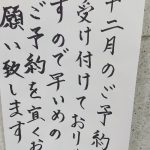 十二月のご予約
受け付けており
すので早いめの
ご予約を宜くお
願い致します